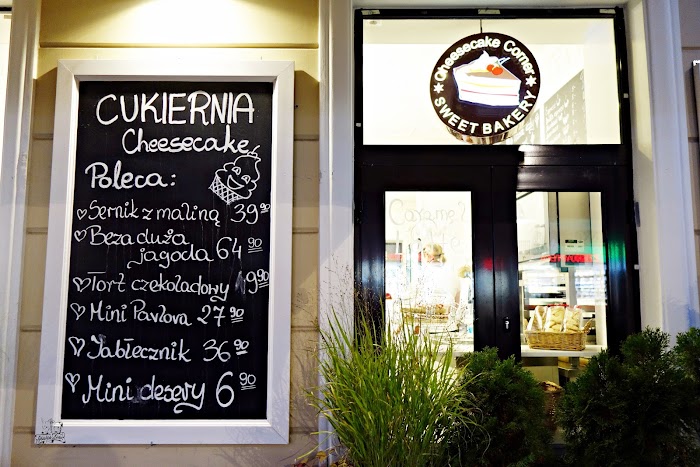 CUKIERNIA
Cheesecake
Poleca:
♡ Sernik z maliną 39 90
♡ Beza duża
jagoda 64 90
♡ Tort czekoladowy 9 90
♡ Mini Pavlova 27 90
♡ Jabłecznik 36 90
♡ Mini desery 6 90
Cheesecake Corner
SWEET BAKERY